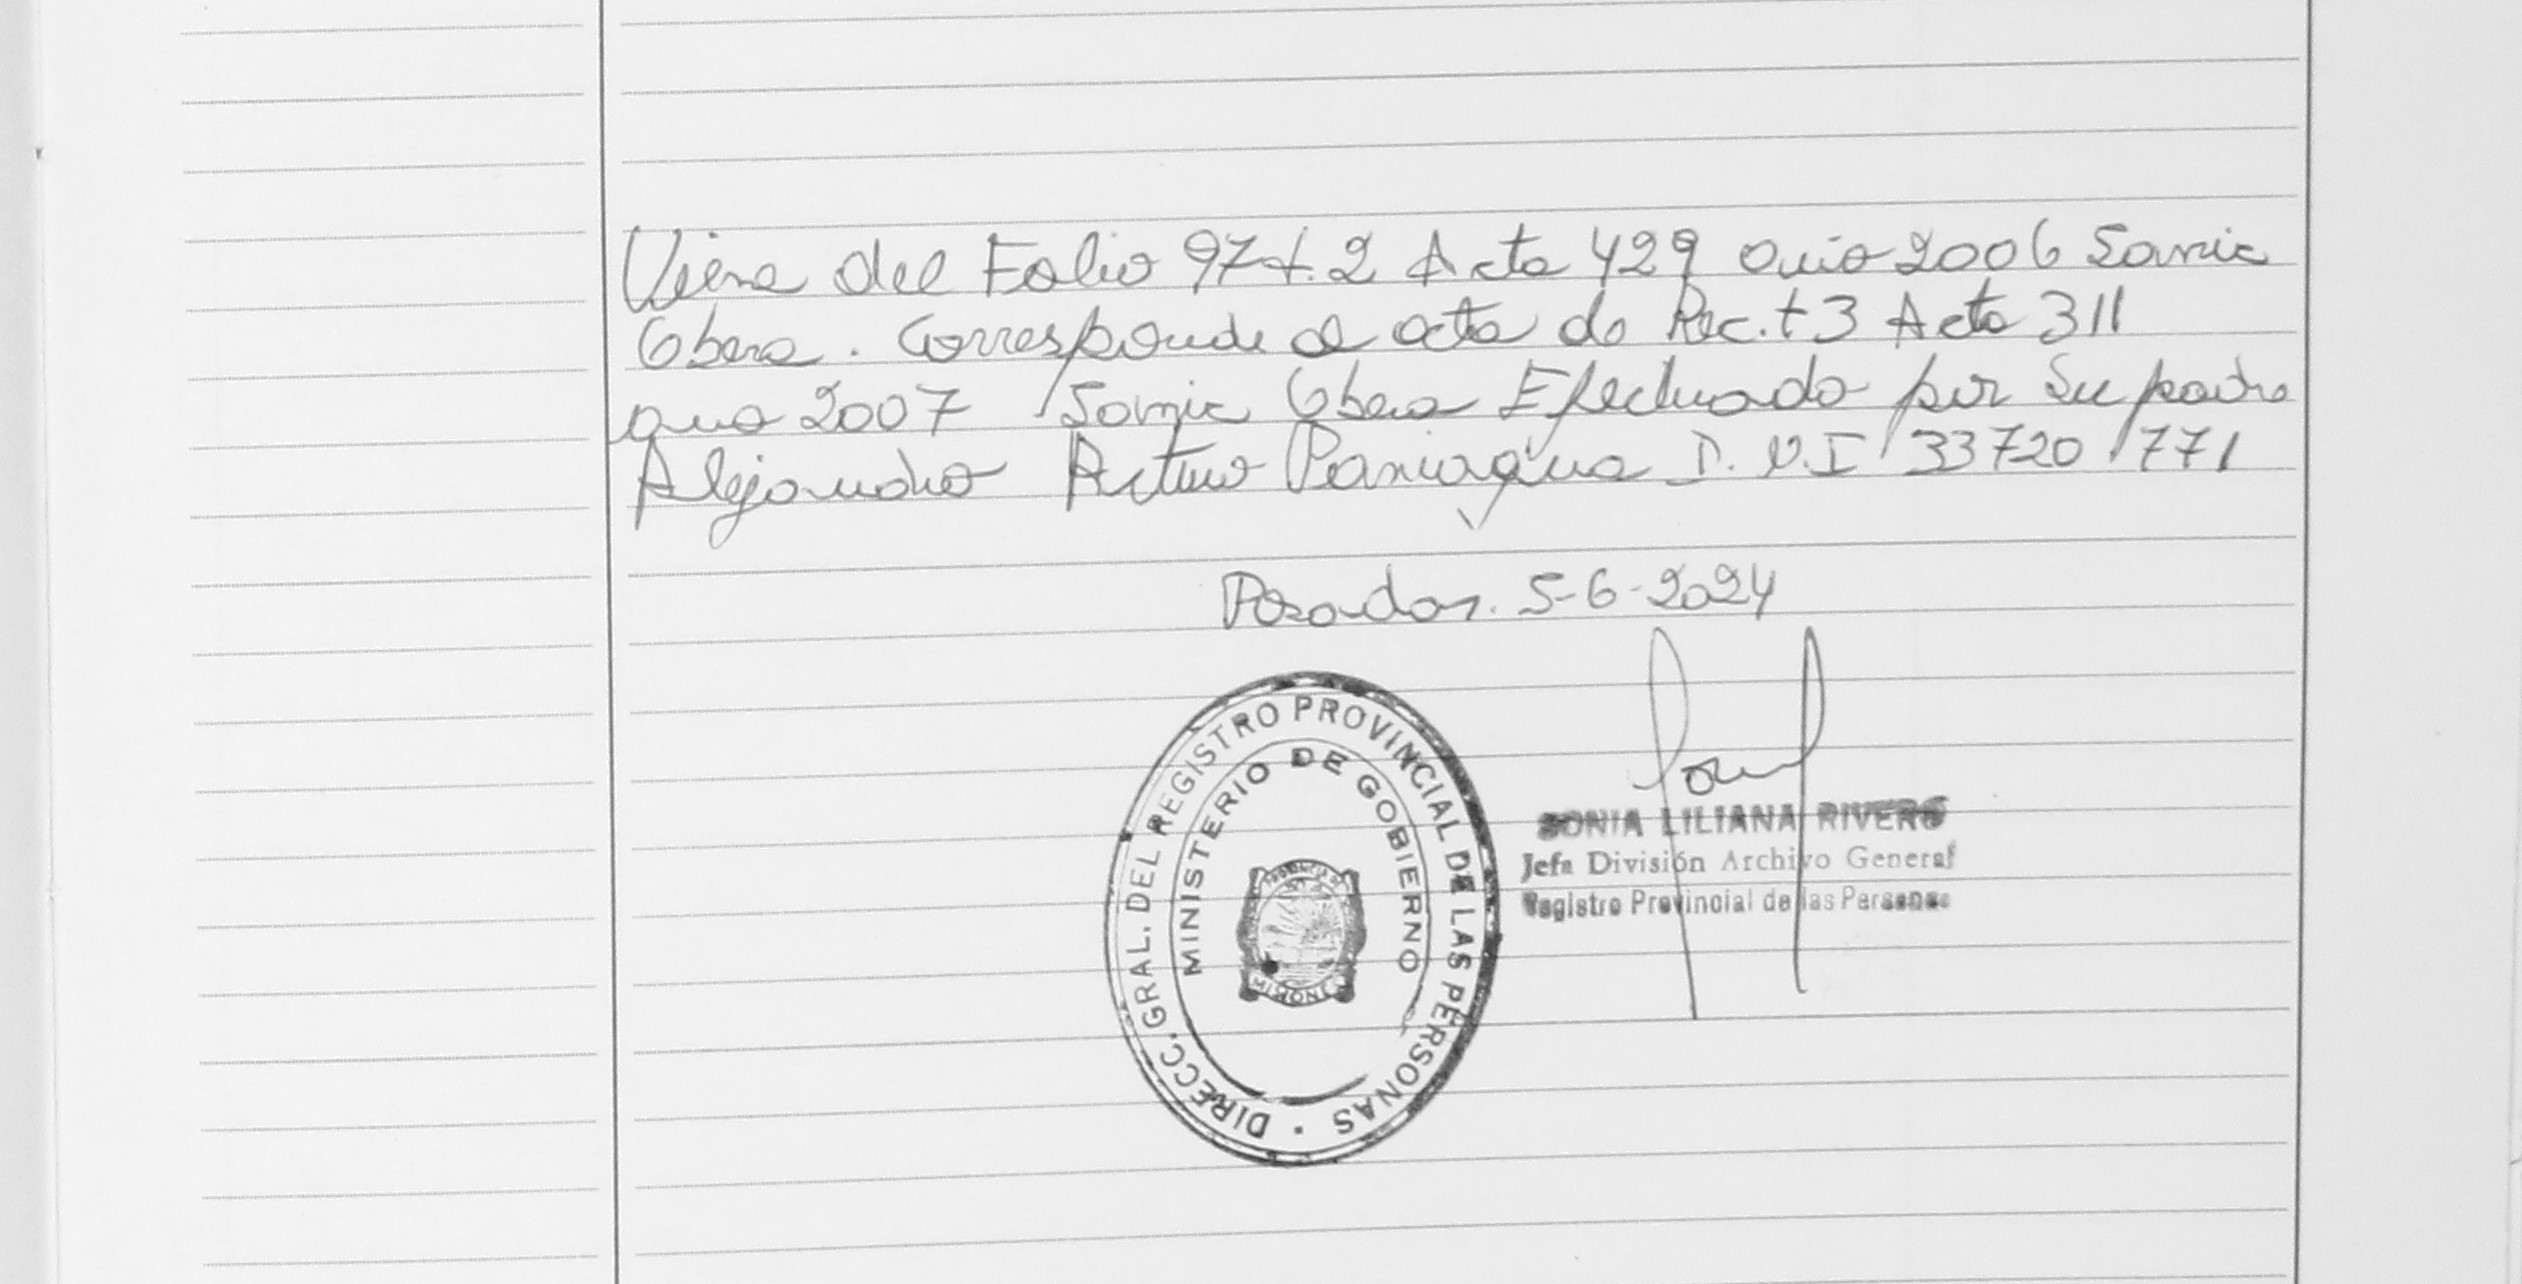 Viene del Folio 97 t.2 Acta 429 año 2006 Samic
Obera. Corresponde al acta de Rec. t 3 Acta 311
año 2007 Samic Obera Efectuado por su padre
Alejandro Arturo Paniagua D.N.I 33720771
Posadas. 5-6-2024
DIRECC. GRAL. DEL REGISTRO PROVINCIAL DE LAS PERSONAS
MINISTERIO DE GOBIERNO
MISIONES
SONIA LILIANA RIVERO
Jefa División Archivo General
Registro Provincial de las Personas